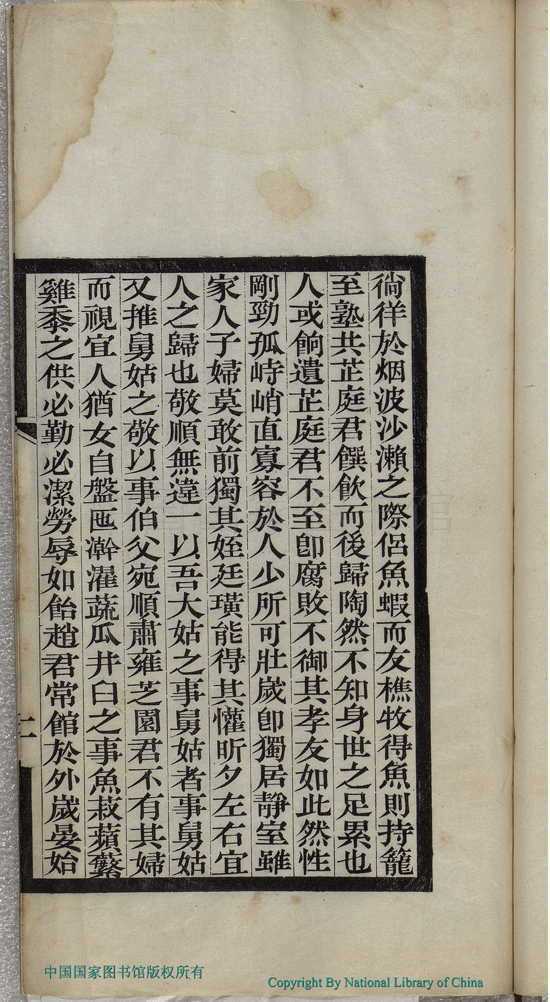 徜徉於烟波沙瀨之際侶魚蝦而友樵牧得魚則持籠
至塾共芷庭君饌飮而後歸陶然不知身世之足累也
人或餉遺芷庭君不至卽腐敗不御其孝友如此然性
剛勁孤峙峭直寡容於人少所可壯歲卽獨居靜室雖
家人子婦莫敢前獨其姪廷璜能得其懽昕夕左右宜
人之歸也敬順無違一以吾大姑之事舅姑者事舅姑
又推舅姑之敬以事伯父宛順肅雍芝園君不有其婦
而視宜人猶女自盤匜澣濯蔬瓜井臼之事魚菽蘋蘩
雞黍之供必勤必潔勞辱如飴趙君常館於外歲晏始
中国国家图书馆版权所有
Copyright By National Library of China